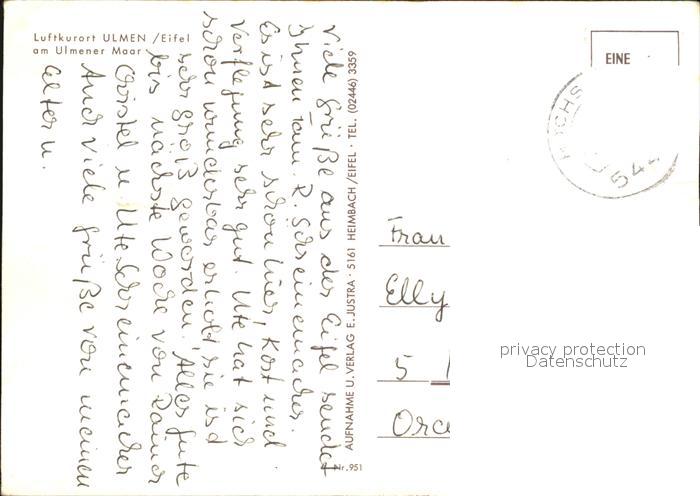 Luftkurort ULMEN /Eifel
am Ulmener Maar
Viele Grüße aus der Eifel sendet
Ihnen Fam. R. Schreinemacher.
Es ist sehr schön hier, Kost und
Verpflegung sehr gut. Ute hat sich
schon wunderbar erholt, sie ist
sehr groß geworden. Alles Gute
bis nächste Woche von Rainer
Christel u. Ute Schreinemacher
Auch viele Grüße von meinen
Eltern.
AUFNAHME U. VERLAG E. JUSTRA · 5161 HEIMBACH/EIFEL · TEL. (02446) 3359
Nr. 951
EINE
544
Frau
Elly
5
privacy protection
Datenschutz